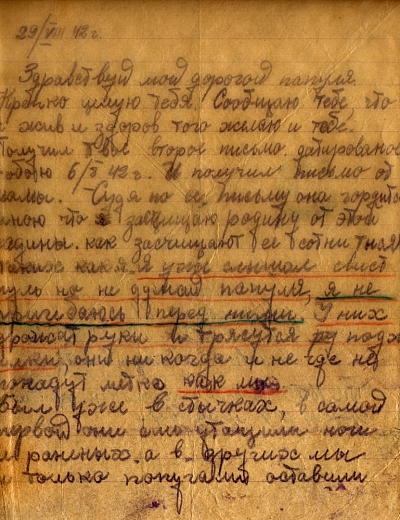 29/VIII 42 г.
Здравствуй мой дорогой папуля.
Крепко целую тебя. Сообщаю тебе, что
я жив и здоров того желаю и тебе.
Получил твое второе письмо датированое
тобою 6/ 42 г. И получил письмо от
мамы. Судя по ее письму она гордится
мною что я защищаю родину от этой
как засчищают ее сотни тысяч
таких как я. Я уже слышал свист
пуль но не думай папуля, я не
пригибаюсь перед ними. У них
дрожат руки и трясутся поджилки,
они никогда и не где не
попадут метко как мы.
Был уже в стычках, в самой
первой они смо утащили ноги
и раненных. а в других мы
и только попугали оставили